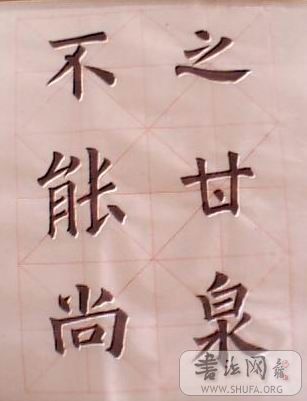 之甘泉
不能尚
书法网
WWW.SHUFA.ORG